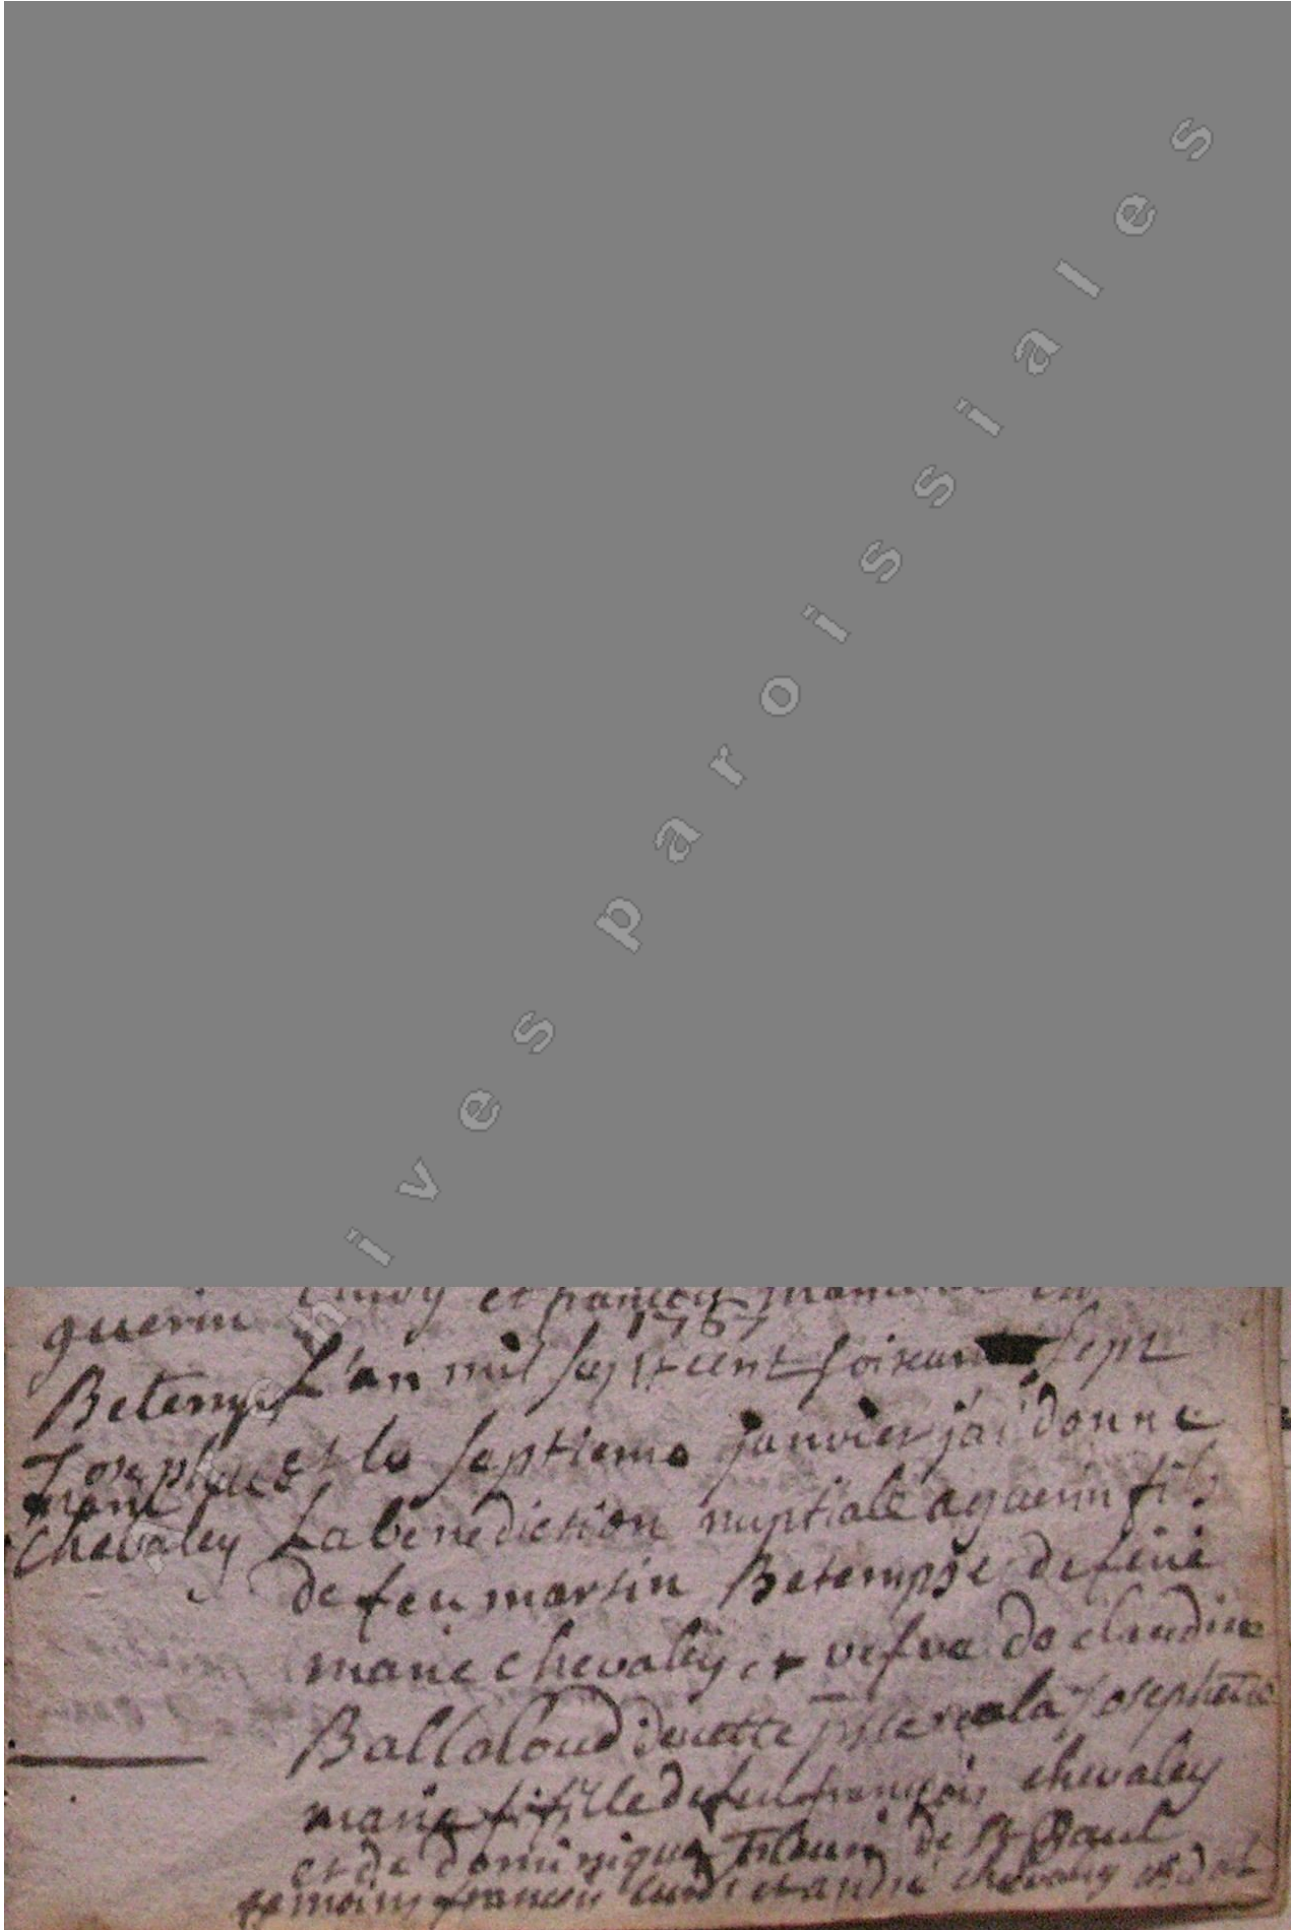 guerin
Betemps
Josephte
marie
Chevaley
et francois
1767
L'an mil sept cent soixante sept
et le septieme janvier j'ai donne
La benediction nuptiale a guerin fils
de feu martin Betemps et de feue
marie chevaley, et vefve de claudine
Ballaloud de cette psse et a la Josephete
marie fille de feu francois chevaley
et de dominique de St Paul
temoins francois et andre chevaley